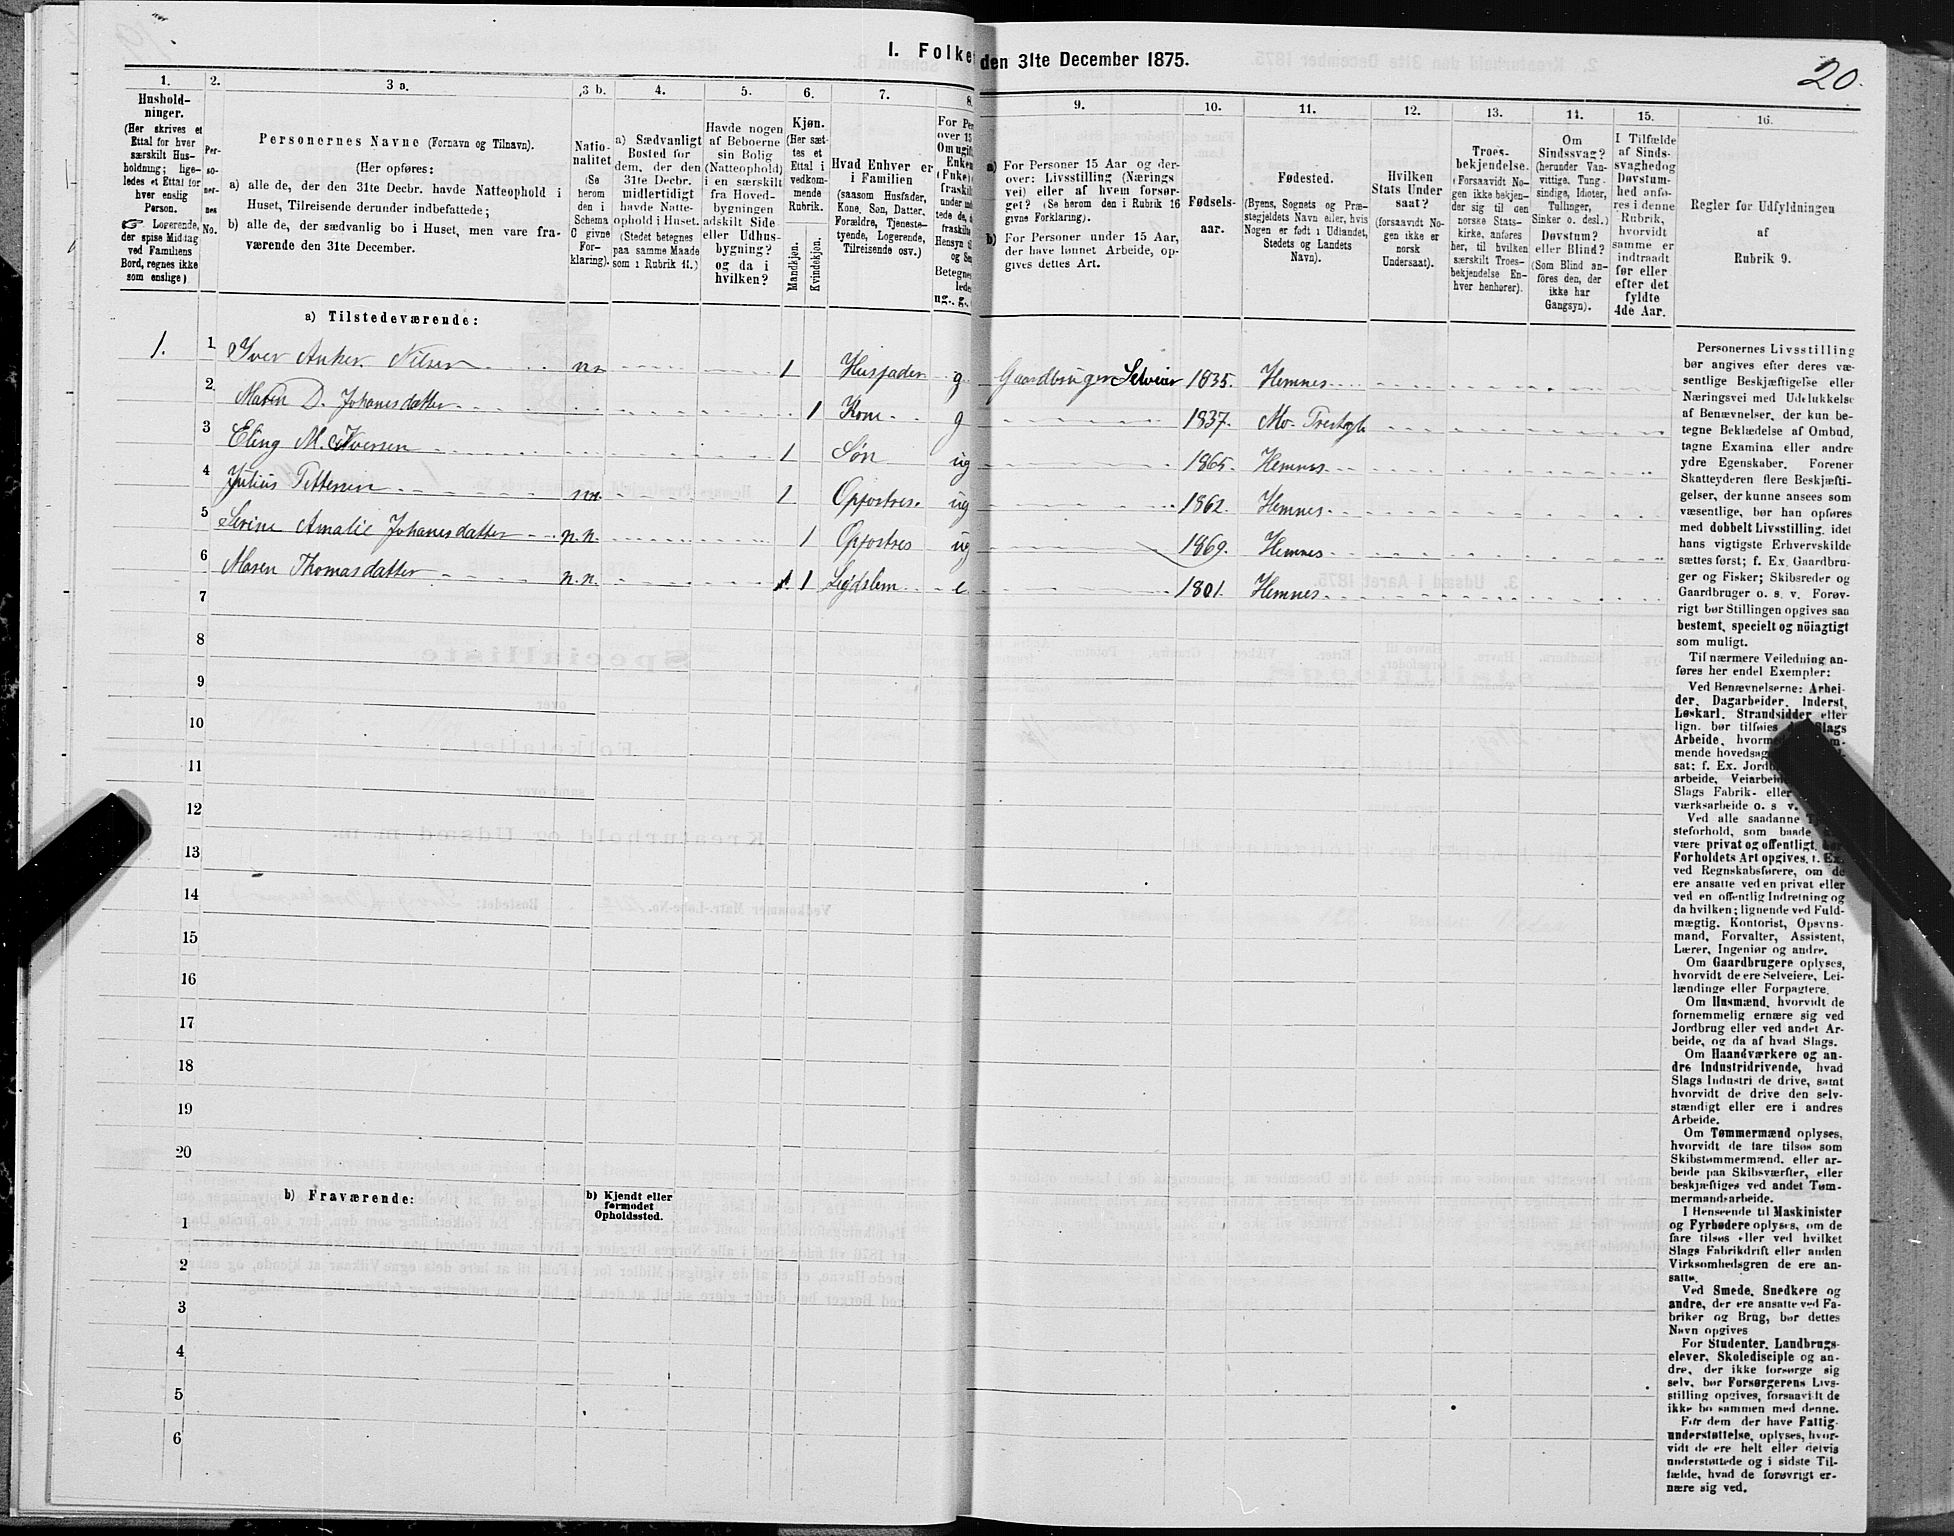 I. Folke den 31te December 1875.
20.
1.
Hushold-
ninger.
(Her skrives et
Ettal for hver
særskilt Hus-
holdning; lige-
ledes et Ettal for
hver enslig
Person.
☞ Logerende,
der spise Middag
ved Familiens
Bord, regnes ikke
som enslige)
2.
Per-
so-
ner-
nes
No.
3 a.
Personernes Navne (Fornavn og Tilnavn).
(Her opføres:
a) alle de, der den 31te Decbr. havde Natteophold i
Huset, Tilreisende derunder indbefattede;
b) alle de, der sædvanlig bo i Huset, men vare fra-
værende den 31te December.
3 b.
Natio-
nalitet
(Se
herom
den i
Schema
C givne
For-
klaring).
4.
a) Sædvanligt
Bosted for
dem, der den
31te Decbr.
midlertidigt
havde Natte-
ophold i Huset.
(Stedet betegnes
paa samme Maade
som i Rubrik 11.)
5.
Havde nogen
af Beboerne
sin Bolig
(Natteophold)
i en særskilt
fra Hoved-
bygningen
adskilt Side-
eller Udhus-
bygning?
og da i
hvilken?
6.
Kjøn.
(Her sæt-
tes et
Ettal i
vedkom-
mende
Rubrik.
Mandkjøn.
Kvindekjøn.
7.
Hvad Enhver er
i Familien
(saasom Husfader,
Kone, Søn, Datter,
Forældre, Tjeneste-
tyende, Logerende,
Tilreisende osv.)
8.
For Per
over 15
Om ugift
Enken
(Enke) e
fraskilt
under
tede de,
fraskilte
Hensyn til
og Se
Betegnes
lede
ug., g.,
9.
a) For Personer 15 Aar og der-
over: Livsstilling (Nærings
vei) eller af hvem forsør-
get? (Se herom den i Rubrik 16
givne Forklaring).
b) For Personer under 15 Aar,
der have lønnet Arbeide, op-
gives dettes Art.
10.
Fødsels-
aar.
11.
Fødested.
(Byens, Sognets og Præ-
stegjeldets Navn eller, hvis
Nogen er født i Udlandet,
Stedets og Landets
Navn).
12.
Hvilken
Stats Under
saat?
(forsaavidt No-
gen ikke er
norsk
Undersaat).
13.
Troes-
bekjendelse.
(Forsaavidt No-
gen ikke bekjen-
der sig til den
norske Stats-
kirke, anføres
her, til hvilken
særskilt Troes-
bekjendelse En-
hver henhører).
14.
Om
Sindssvag?
(herunder Van-
vittige, Tung-
sindige, Idioter,
Tullinger,
Sinker o. desl.)
Døvstum?
eller Blind?
(Som Blind an-
føres den, der
ikke har
Gangsyn).
15.
I Tilfælde
af Sinds-
svaghedog
Døvstum-
hed anfø-
res i denne
Rubrik,
hvorvidt
samme er
indtraadt
før eller
efter det
fyldte
4de Aar.
16.
Regler for Udfyldningen
af
Rubrik 9.
a) Tilstedeværende:
1. 1 Iver Anker Nilsen nn 1 Husfader g Gaardbruger Selveier 1835. Hemnes
2 Maren D. Johanesdatter 1 Kone g 1837. Mo
3 Eling M. Iversen 1 Søn ug 1865. Hemnes
4 Julius Pettersen nn 1 Opfostres. ug 1862. Hemnes
5 Serine Amalie Johanesdatter n.n. 1 Opfostres ug 1869. Hemnes
6 Maren Thomasdatter n.n. 1 Legdslem e 1801. Hemnes
7
8
9
10
11
12
13
14
15
16
17
18
19
20
b) Fraværende:
b) Kjendt eller
formodet
Opholdssted.
1
2
3
4
5
6
Personernes Livsstilling
bør angives efter deres væ-
sentlige Beskjæftigelse eller
Næringsvei med Udelukkelse
af Benævnelser, der kun be-
tegne Beklædelse af Ombud,
tagne Examina eller andre
ydre Egenskaber. Forener
Skatteyderen flere Beskjæfti-
gelser, der kunne ansees som
væsentlige, bør han opføres
med dobbelt Livsstilling, idet
hans vigtigste Erhvervskilde
sættes først; f. Ex. Gaardbru-
ger og Fisker; Skibsreder og
Gaardbruger o. s. v. Forøv-
rigt bør Stillingen opgives saa
bestemt, specielt og nöiagtigt
som muligt.
Til nærmere Veiledning an-
føres her endel Exempler:
Ved Benævnelserne: Arbei-
der, Dagarbeider, Inderst,
Løskarl, Strandsidder eller
lign. bør tilføies Slags
Arbeide, hvorm
mende hovedsag
sat; f. Ex. Jord
arbeide, Veiarbei
Slags Fabrik- eller
værksarbeide o. s v.
Ved alle saadanne
steforhold, som baade
være privat og offentligt,
Forholdets Art opgives, f. Ex.
ved Regnskabsførere, om de
ere ansatte ved en privat eller
ved en offentlig Indretning og
da hvilken; lignende ved Fuld-
mægtig, Kontorist, Opsyns-
mand, Forvalter, Assistent,
Lærer, Ingeniør og andre.
Om Gaardbrugere oplyses,
hvorvidt de ere Selveiere, Lei-
lændinge eller Forpagtere.
Om Husmænd, hvorvidt de
fornemmelig ernære sig ved
Jordbrug eller ved andet Ar-
beide, og da af hvad Slags.
Om Haandværkere og an-
dre Industridrivende, hvad
Slags Industri de drive, samt
hvorvidt de drive den selv-
stændigt eller ere i andres
Arbeide.
Om Tømmermænd oplyses,
hvorvidt de fare tilsøs som
Skibstømmermænd, eller ar-
beide paa Skibsværfter, eller
beskjæftiges ved andet Tøm-
mermandsarbeide.
I Henseende til Maskinister
og Fyrbødere oplyses, om de
fare tilsøs eller ved hvilket
Slags Fabrikdrift eller anden
Virksomhedsgren de ere an-
satte.
Ved Smede, Snedkere og
andre, der ere ansatte ved Fa-
briker og Brug, bør dettes
Navn opgives
For Studenter, Landbrugs-
elever, Skoledisciple og an-
dre, der ikke forsørge sig
selv, bør Forsørgerens Livs-
stilling opgives, forsaavidt de
ikke bo sammen med denne.
For dem der have Fattig-
understøttelse, oplyses, hvor-
vidt de ere helt eller delvis
understøttede og i sidste Til-
fælde, hvad de forøvrigt er-
nære sig ved.